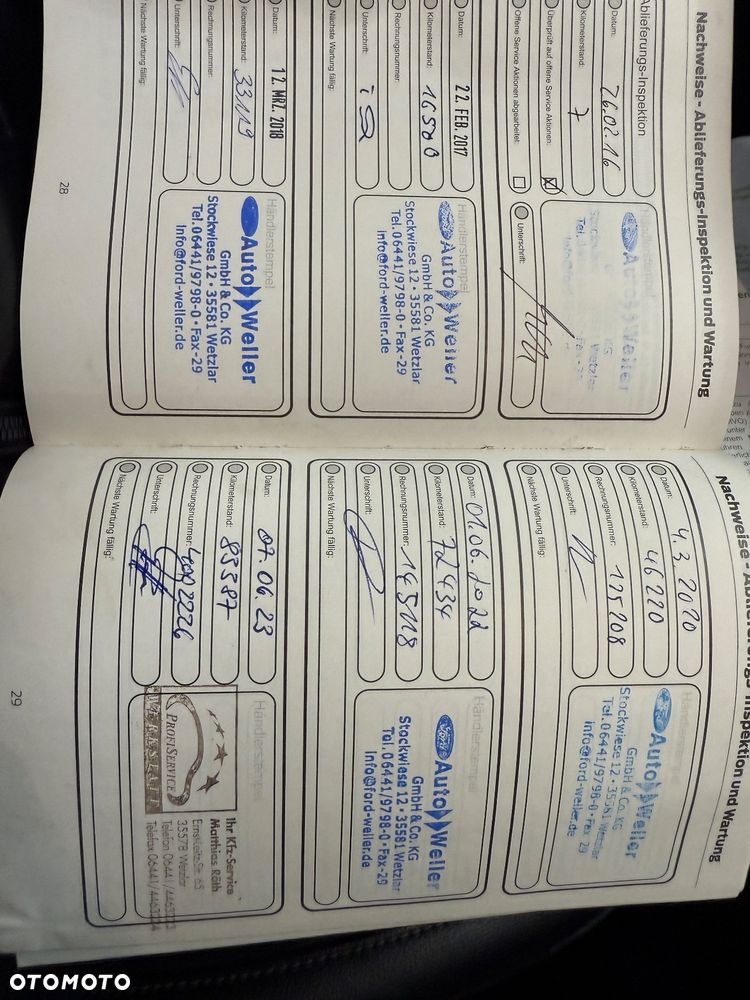 Nachweise - Ablieferungs-Inspektion und Wartung
Ablieferungs-Inspektion
Datum: 26.02.16
Kilometerstand: 7
Überprüft auf offene Service Aktionen:
Offene Service Aktionen abgearbeitet:
Unterschrift:
Händlerstempel
Auto Weller
KG
Wetzlar
Tel.
Datum: 22. FEB. 2017
Kilometerstand: 16580
Rechnungsnummer:
Unterschrift:
Nächste Wartung fällig:
Händlerstempel
Ford
Auto Weller
GmbH & Co. KG
Stockwiese 12 • 35581 Wetzlar
Tel. 06441/9798-0 • Fax -29
info@ford-weller.de
Datum: 12. MRZ. 2018
Kilometerstand: 33119
Rechnungsnummer:
Unterschrift:
Nächste Wartung fällig:
Händlerstempel
Ford
Auto Weller
GmbH & Co. KG
Stockwiese 12 • 35581 Wetzlar
Tel. 06441/9798-0 • Fax -29
Info@ford-weller.de
28
Nachweise - Ablieferungs-Inspektion und Wartung
Datum: 4.3.2020
Kilometerstand: 46220
Rechnungsnummer: 125208
Unterschrift:
Nächste Wartung fällig:
Händlerstempel
Ford
Auto Weller
GmbH & Co. KG
Stockwiese 12 • 35581 Wetzlar
Tel. 06441/9798-0 • Fax 29
info@ford-weller.de
Datum: 01.06.2022
Kilometerstand: 72434
Rechnungsnummer: 145118
Unterschrift:
Nächste Wartung fällig:
Händlerstempel
Ford
Auto Weller
GmbH & Co. KG
Stockwiese 12 • 35581 Wetzlar
Tel. 06441/9798-0 • Fax -29
Info@ford-weller.de
Datum: 07.06.23
Kilometerstand: 83587
Rechnungsnummer: 4002226
Unterschrift:
Nächste Wartung fällig:
Händlerstempel
PROFISERVICE
WERKSTATT
Ihr Kfz-Service
Matthias Röth
35578 Wetzlar
Telefon 06441/
Telefax 06441/
29
OTOMOTO